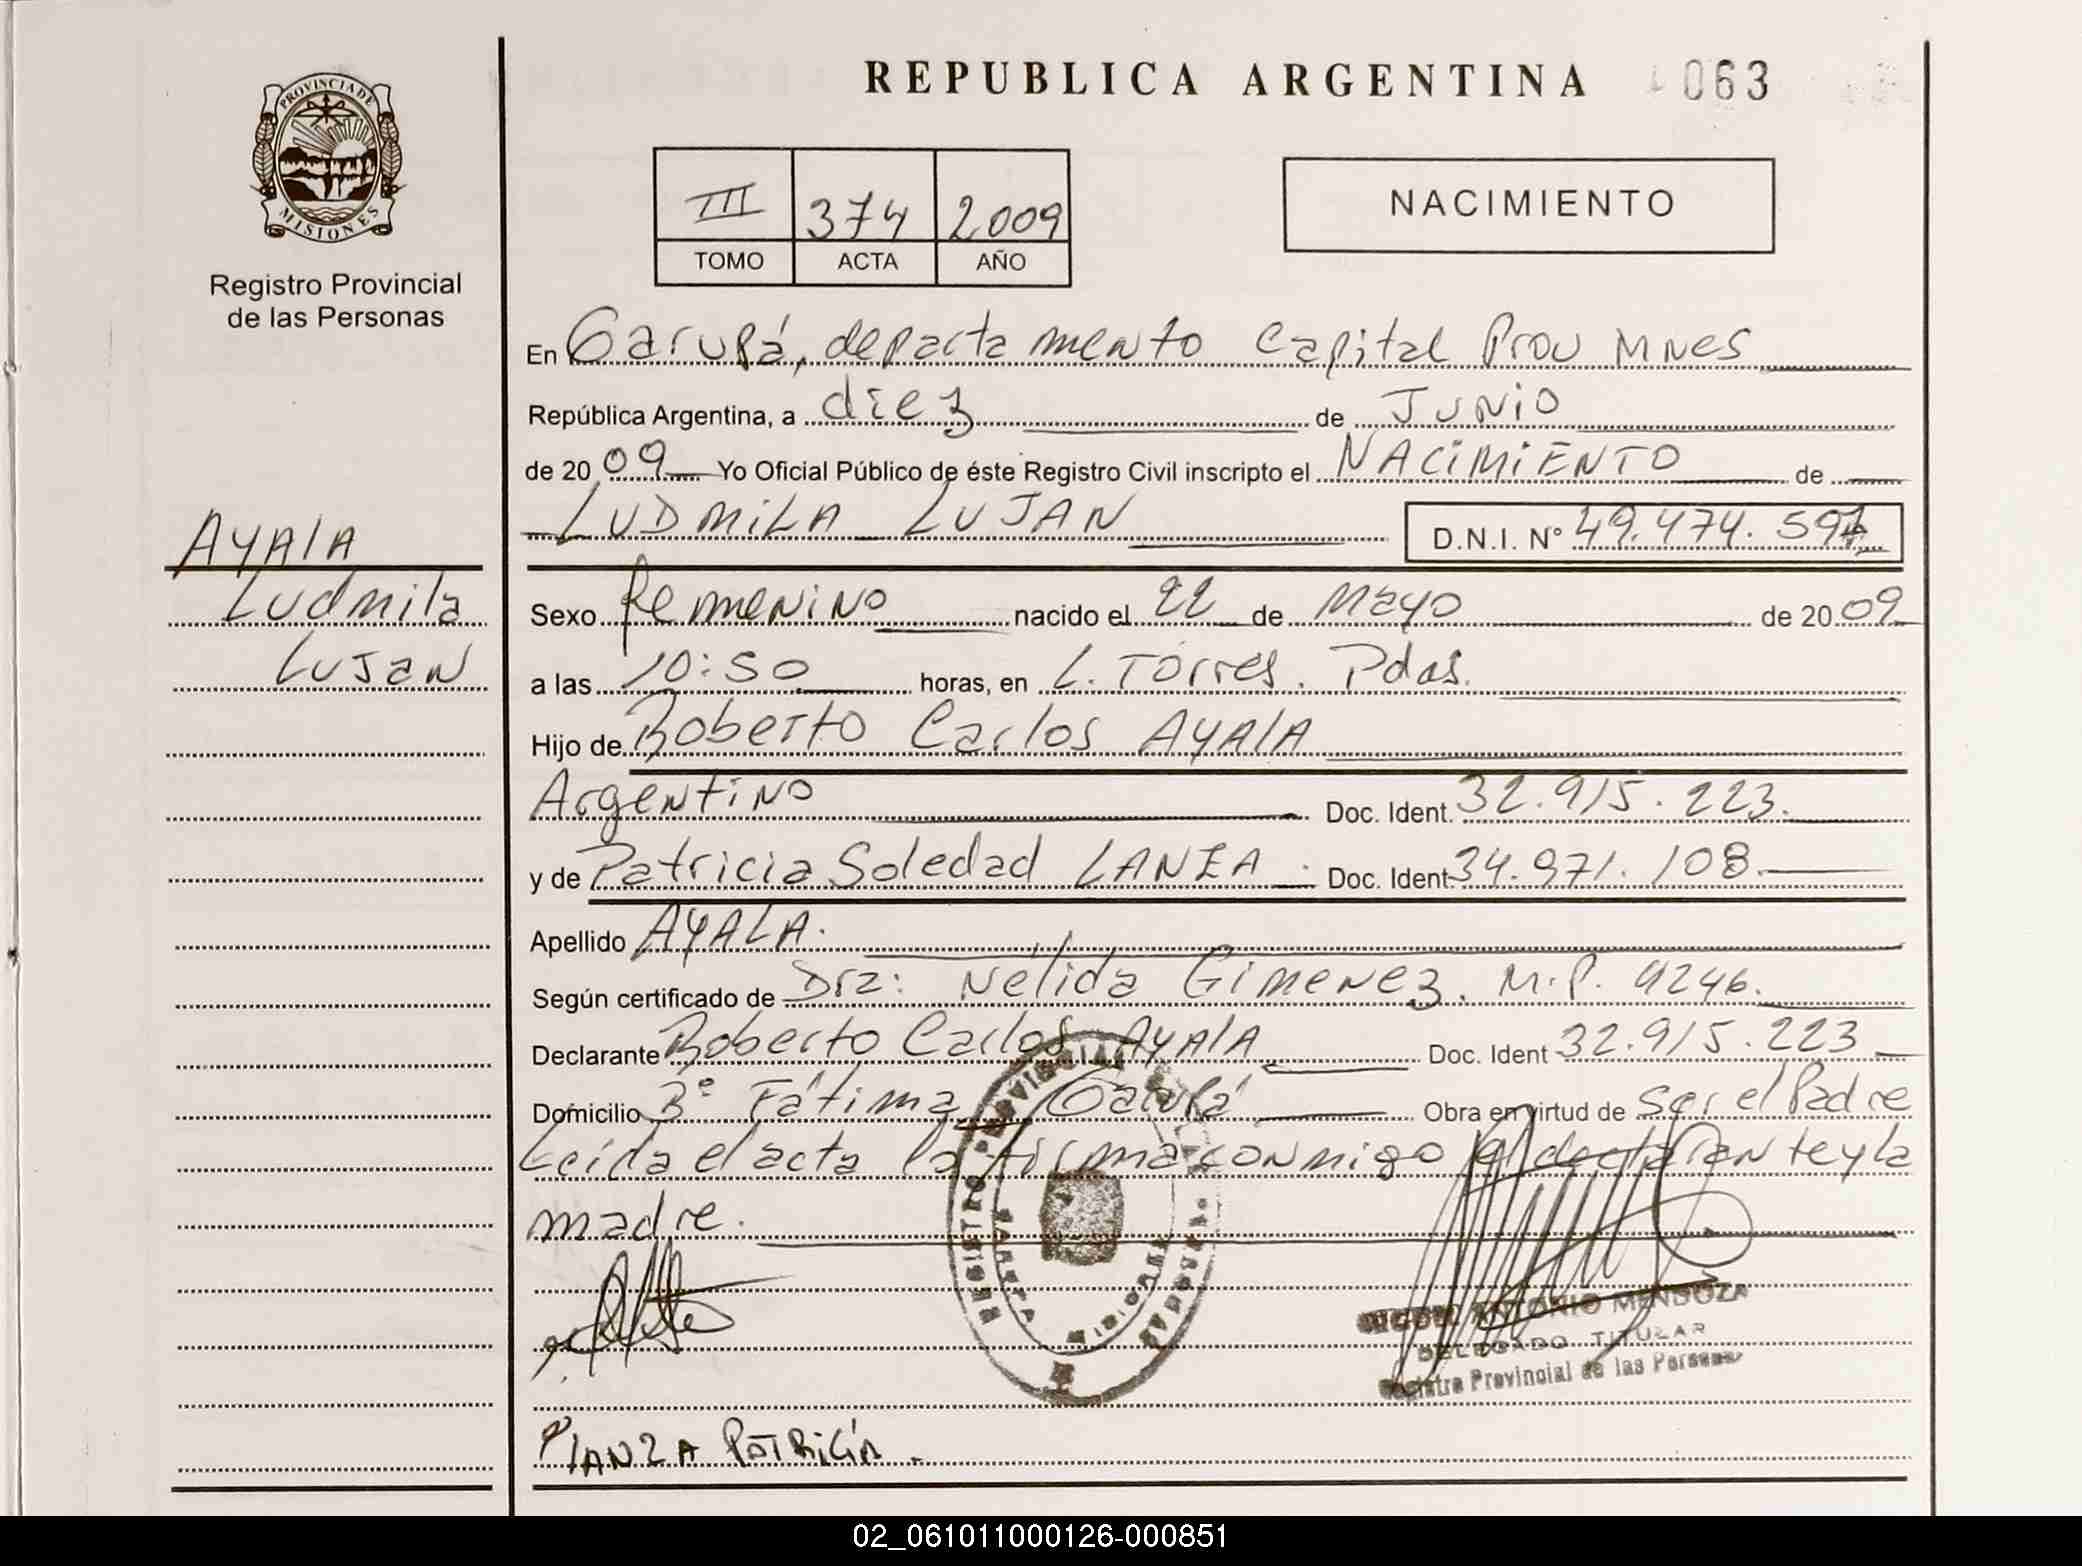 REPUBLICA ARGENTINA 063
PROVINCIA DE
MISIONES
Registro Provincial
de las Personas
III 374 2009
TOMO ACTA AÑO
NACIMIENTO
En Garupá, departamento Capital Prov Mnes
República Argentina, a diez de Junio
de 2009 Yo Oficial Público de éste Registro Civil inscripto el NACIMIENTO de
LUDMILA LUJAN D.N.I. Nº 49.474.591
AYALA
Ludmila
Lujan
Sexo femenino nacido el 22 de Mayo de 2009
a las 10:50 horas, en L. Torres. Pdas.
Hijo de Roberto Carlos AYALA
Argentino Doc. Ident. 32.915.223.
y de Patricia Soledad LANZA Doc. Ident 34.971.108
Apellido AYALA.
Según certificado de Dra: Nélida Gimenez. M.P. 4246.
Declarante Roberto Carlos AYALA Doc. Ident 32.915.223
Domicilio Bº Fátima Garupá Obra en virtud de ser el Padre
Leída el acta la firma conmigo el declarante y la
madre.
REGISTRO PROVINCIAL DE LAS PERSONAS
GARUPA
MISIONES
MIGUEL ANTONIO MENDOZA
DELEGADO TITULAR
Registro Provincial de las Personas
LANZA PATRICIA.
02_061011000126-000851